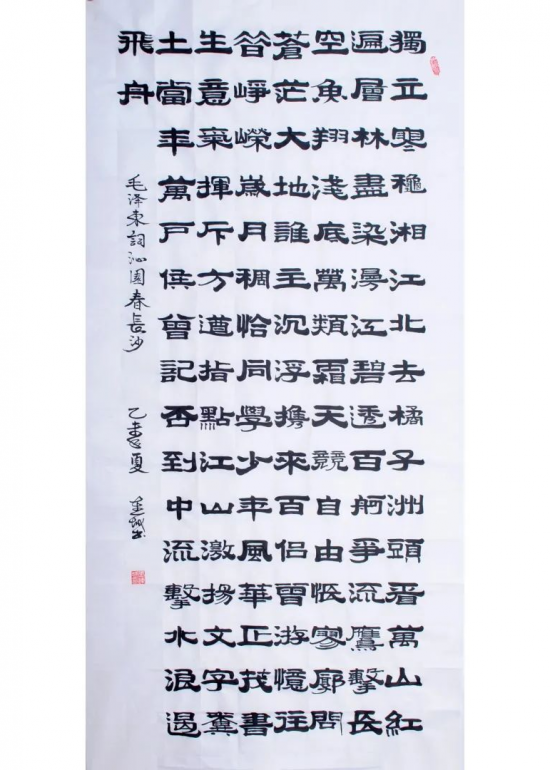 獨立寒穐湘江北去橘子洲頭看萬山紅
遍層林盡染漫江碧透百舸爭流鷹擊長
空魚翔淺底萬類霜天競自由悵寥廓問
蒼茫大地誰主沉浮攜來百侶曾游憶往
昔崢嶸歲月稠恰同學少年風華正茂書
生意氣揮斥方遒指點江山激揚文字糞
土當年萬戶侯曾記否到中流擊水浪遏
飛舟
毛泽東詞沁園春長沙 乙 夏 书